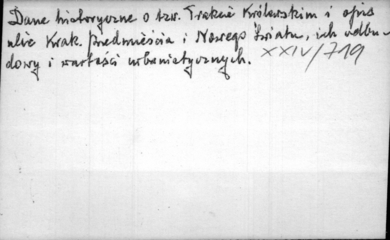 Dane historyczne o tzw. Trakcie Królewskim i opis
ulic Krak. Przedmieścia i Nowego Światu, ich odbu-
dowy i wartości urbanistycznych.
XXIV/719